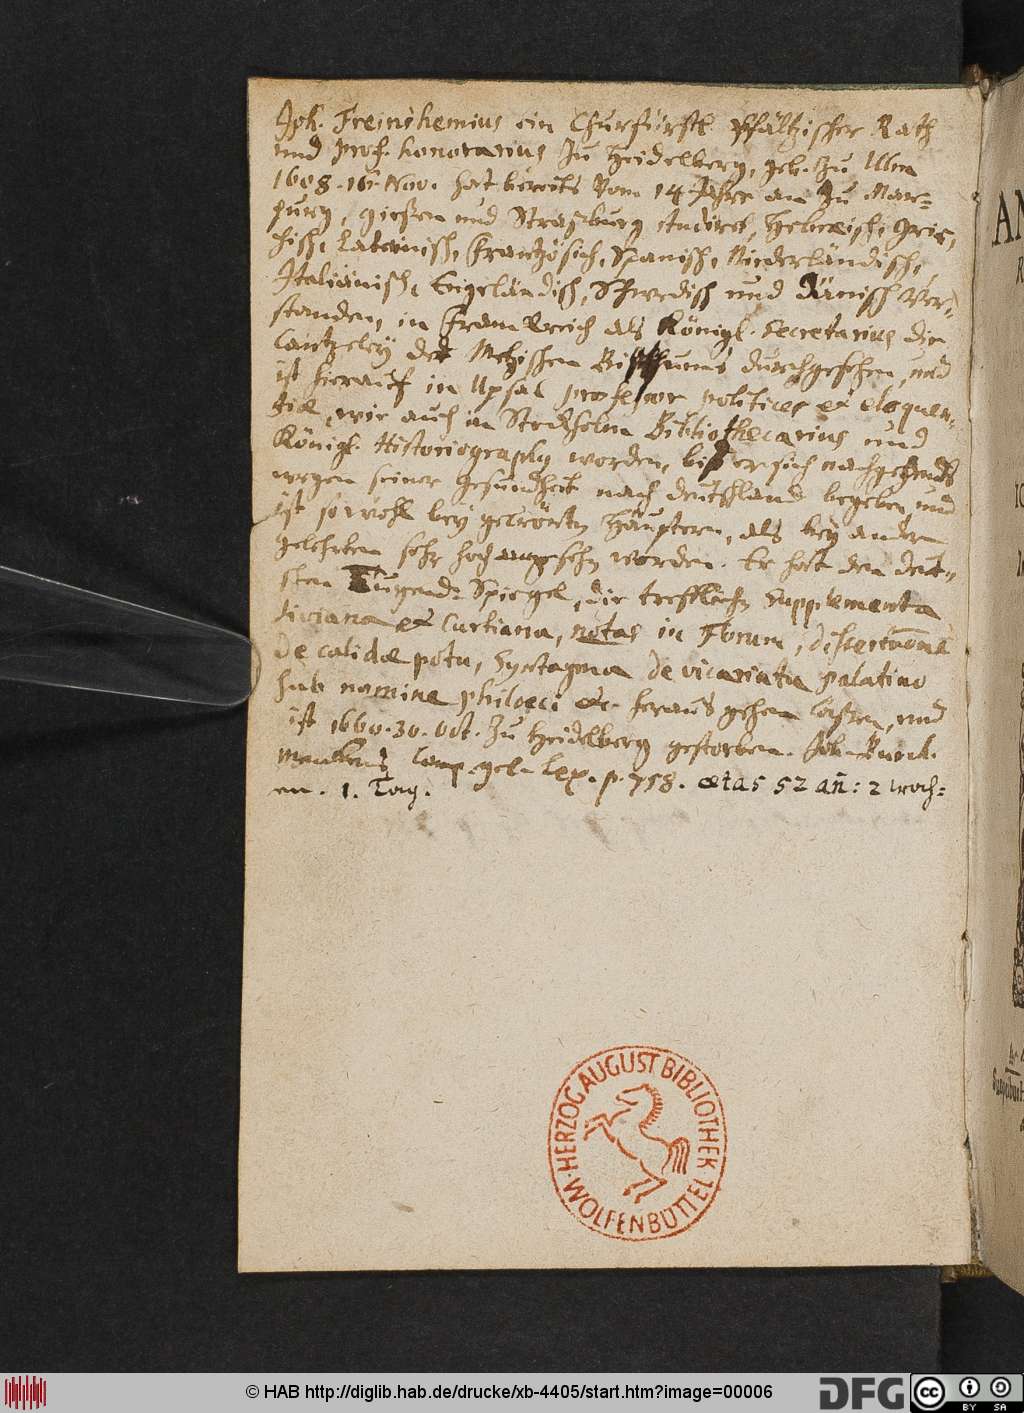 Joh. Freinshemius ein Churfürstl Pfältzischer Rath
und Prof. honorarius zu Heidelberg, geb. zu Ulm
1608. 16. Nov. hat bereits vom 14 Jahre an zu Mar-
purg, Gießen und Straßburg studiret, Hebreisch, Grie,
chisch, Lateinisch, Frantzösisch, Spanisch, Niederländisch,
Italiänisch, Engeländisch, Schwedisch und Dänisch ver-
standen, in Franckreich als Königl. Secretarius die
Cantzeley des Metzischen Bisthums durchgesehen, und
ist hierauf in Upsal professor politices et eloquen-
tiæ, wie auch in Stockholm Bibliothecarius und
Königl. Historiography worden, biß er sich nachgehends
wegen seiner Gesundheit nach Deutschland begeben, und
ist sowohl bey gekrönten Häuptern, als bey andern
gelehrten sehr hoch angesehn worden. Er hat den deut-
schen Tugend-Spiegel, die trefflichen Supplementa
Liviana et Curtiana, notas in Florum, dissertationē
De calidæ potu, Syntagma De vicariatu palatino
sub nomine Philoeci &c. heraus gehen laßen, und
ist 1660. 30. Oct. zu Heidelberg gestorben. Joh. Burck.
Menkens Comp. Gel. Lex. p. 758. ætas 52 añ: 2 woch=
en. 1. Tag.
HERZOG AUGUST BIBLIOTHEK
WOLFENBÜTTEL
© HAB http://diglib.hab.de/drucke/xb-4405/start.htm?image=00006
DFG
cc
BY SA